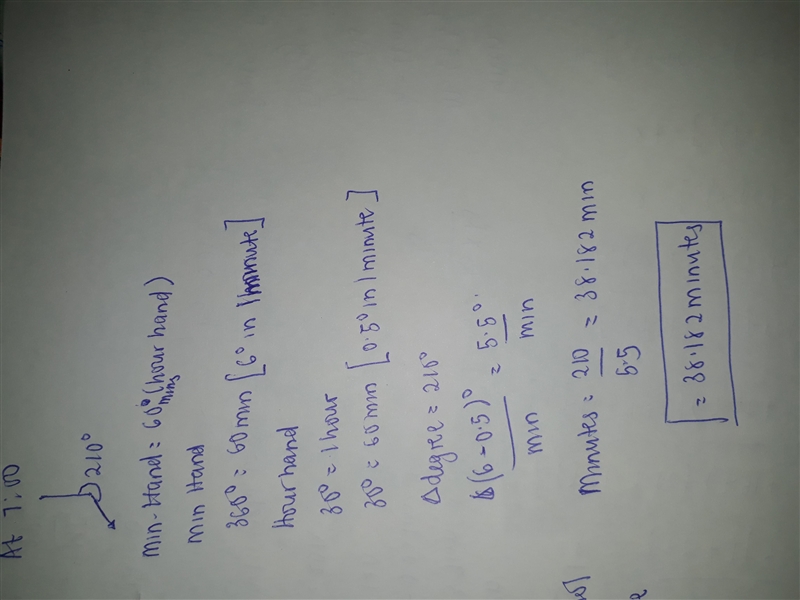 At 7:00
210°
min-Hand = 60° (hour hand)
mins
Min Hand
360° = 60min [6° in 1 minute]
Hour hand
30° = 1 hour
30° = 60 min [0.5° in 1 minute]
Δdegree = 210°
(6 - 0.5)° / min = 5.5° / min
Minutes = 210 / 5.5 = 38.182 min
= 38.182 minutes